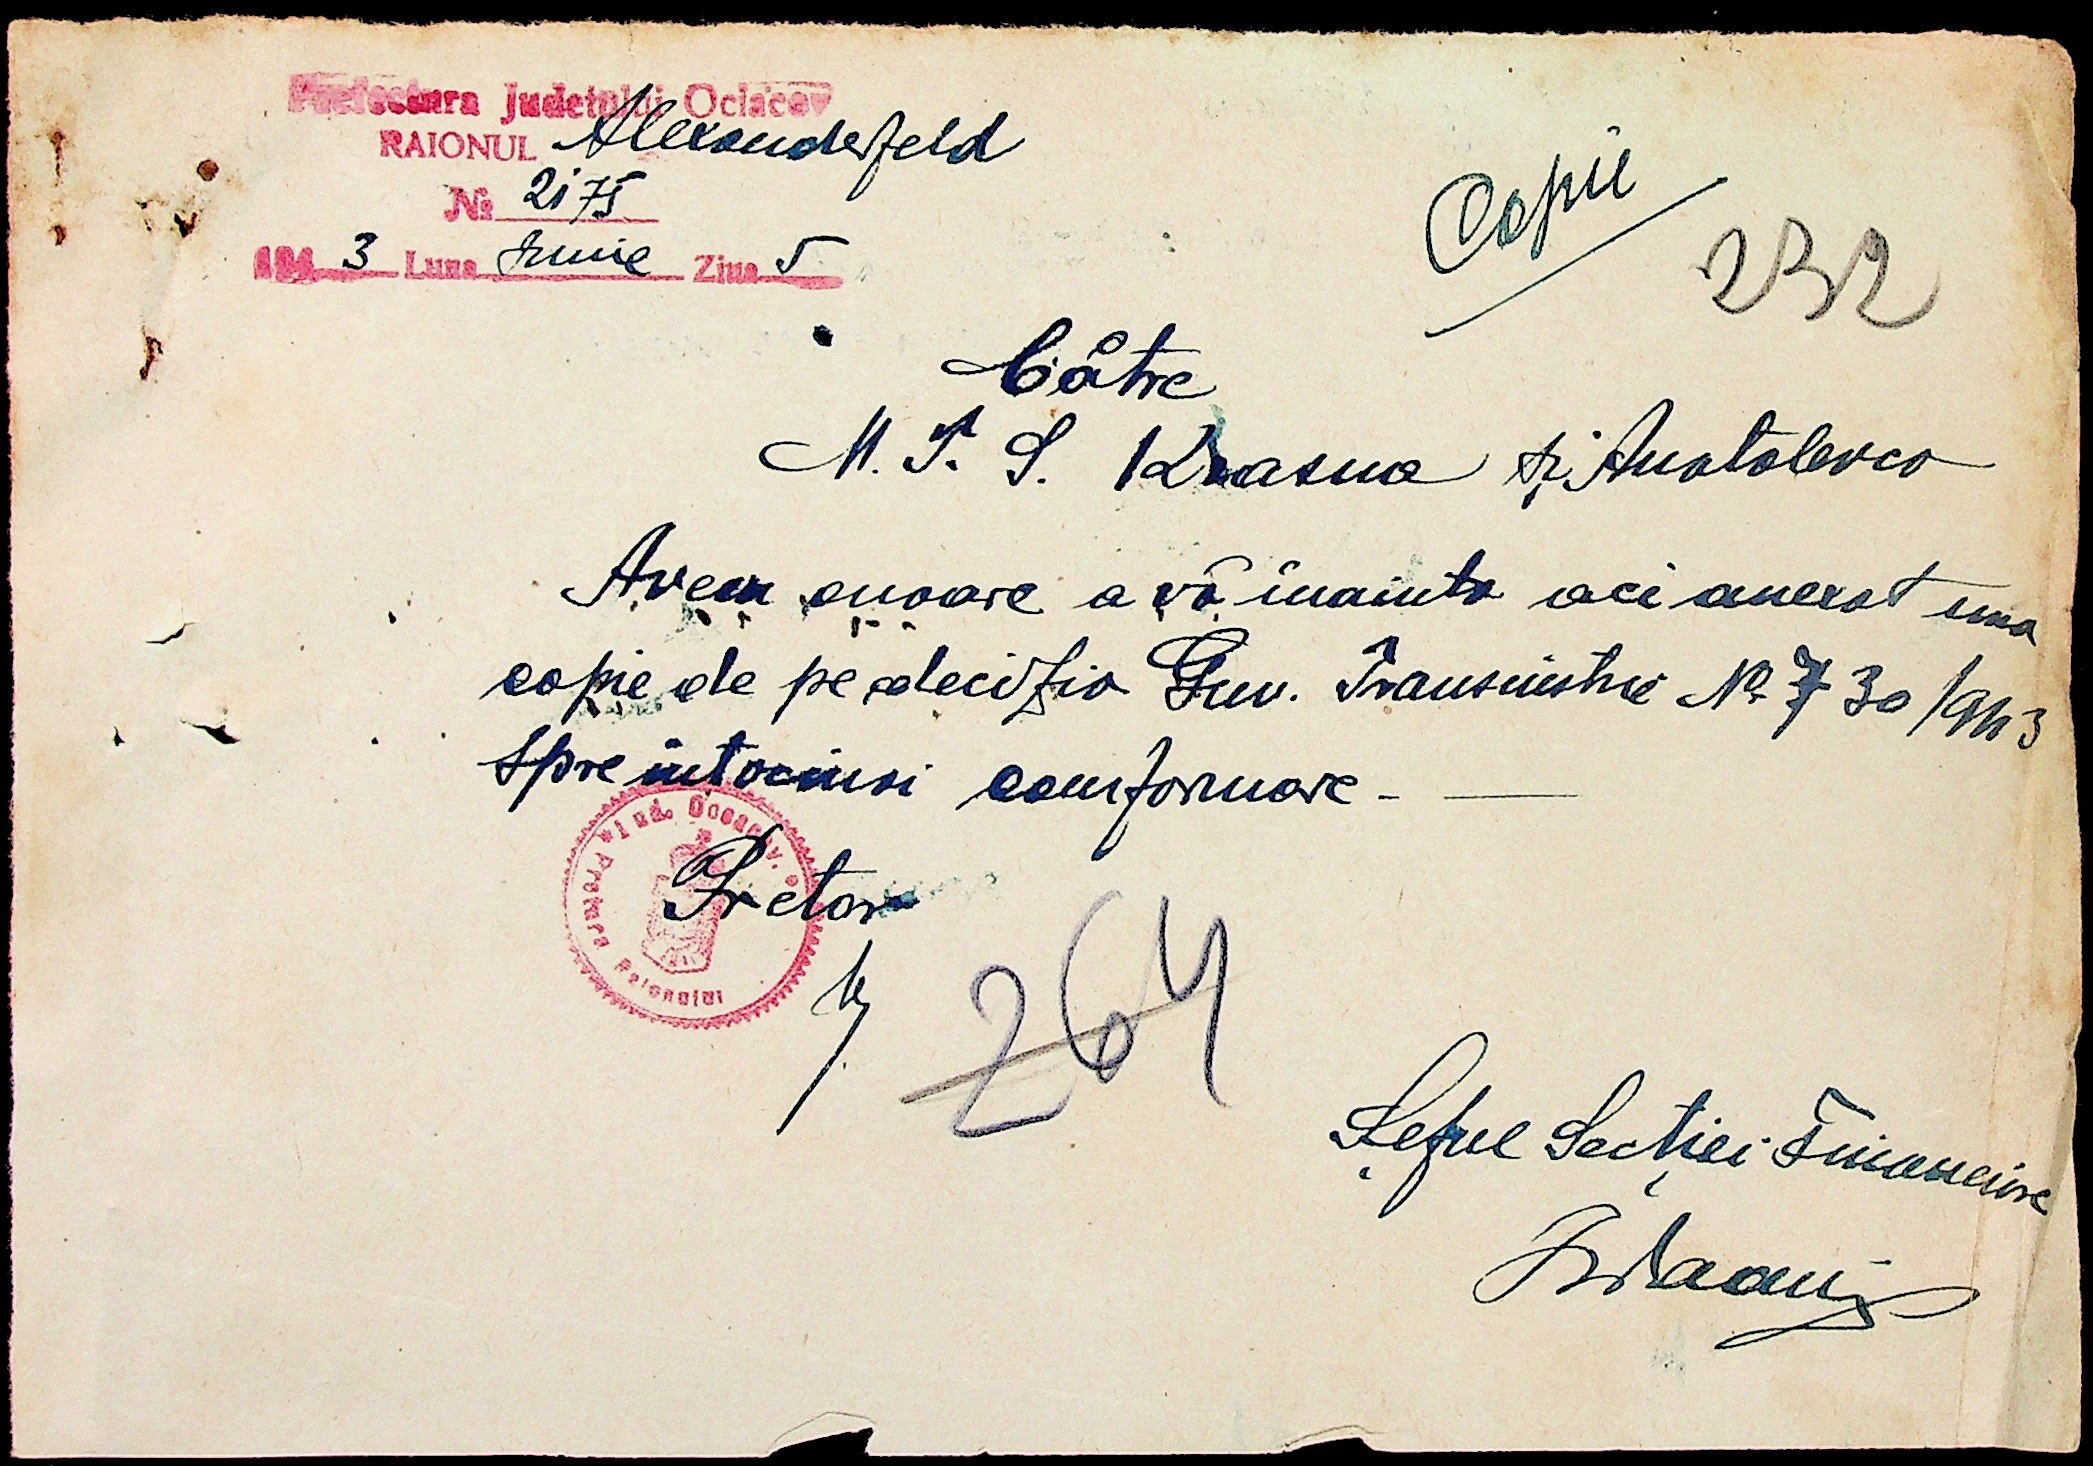 Prefectura Județului Oceacov
RAIONUL Alexanderfeld
№ 2175
194 3 Luna Iunie Ziua 5
Copie
232
Către
M. T. S. Krasna și Anatolevca
Avem onoare a vă înainta aci anexat una
copie de pe decizia Guv. Transnistriei No 730/943
spre întocmai comformare. —
Pretor
Jud. Oceacov.
Pretura Raionului
264
Șeful Secției Financiare